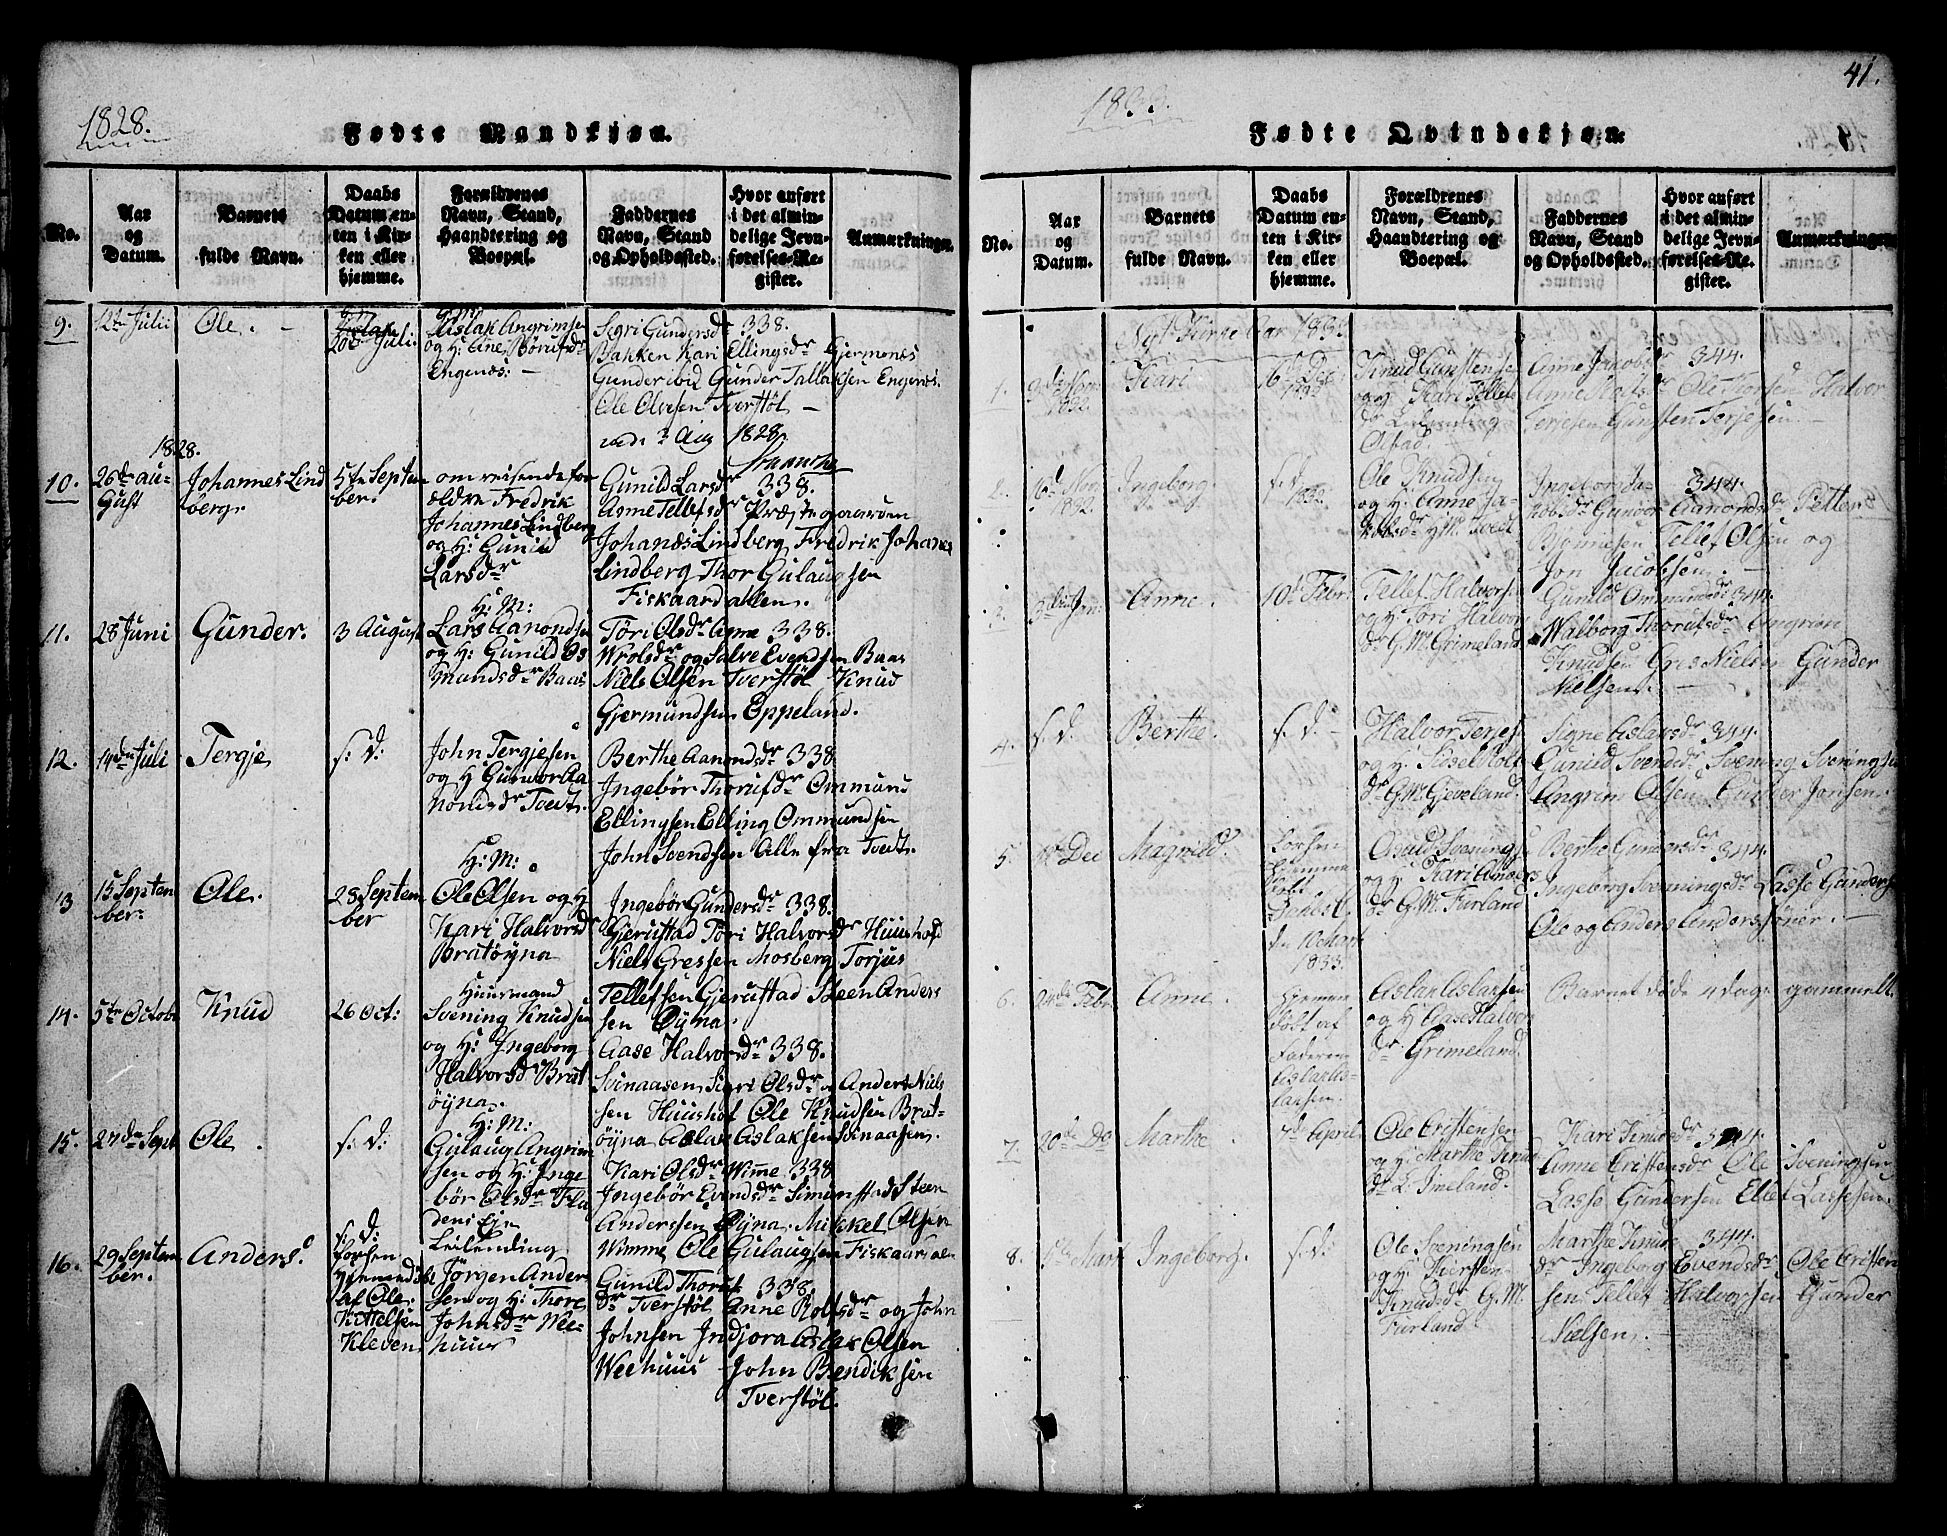 1828.
Fødte Mandkjøn.
No.
Aar
og
Datum.
Barnets
fulde Navn.
Daabs
Datum en-
ten i Kir-
ken eller
hjemme.
Forældrenes
Navn, Stand,
Haandtering og
Boepæl.
Faddernes
Navn, Stand
og Opholdssted.
Hvor anført
i det almin-
delige Jevn-
førelses-Re-
gister.
Anmærkninger.
9.
12te Julii
Ole.
20de Juli.
Aslak Angrimsen
og H: Ane Børufsdr
Engenæs:
Segri Gundersdr 338.
Bakken Kari Ellingsdr Gjermenes
Gunder ibid Gunder Tallaksen Engenæs.
Ole Olvesen Tverstøl
Aug 1828
1828.
10.
26de au-
Gust
Johannes Lind
berg.
5te Septem
ber.
om reisende for
ældre Fredrik
Johannes Lindberg
og H: Gunild
Larsdr
Gunild Larsdr 338.
Anne Tellefsdr Præstegaarden
Johanes Lindberg Fredrik Johanes
Lindberg Thor Gulaugsen
Fiskaardalen.
11.
28 Juni
Gunder.
3 August
H: M:
Lars Aanondsen
og H: Gunild Os
mundsdr Baas
Tøri Olsdr Anne 338.
Wrolsdr og Salve Evendsen Baas
Niels Olsen Tverstøl Knud
Gjermundsen Eppeland.
12.
14de Juli
Tergje
s: d:
John Tergjesen
og H Gunvor Aa
nonsdr Tvedt.
Berthe Aanondsdr 338
Ingebør Thorufsdr Ommund
Ellingsen Elling Ommundsen
John Svendsen Alle fra Tvedt.
13
15 Septem
ber:
Ole.
28 Septem
ber
H: M:
Ole Olsen og H
Kari Halvorsdr
Bratøyna
Ingebør Gundersdr 338.
Gjerustad Tori Halvorsdr Huushof
Niels Gressen Mosberg Torjus
Tellefsen Gjerustad Steen Anders
sen Øyna.
14.
5te Octobr
Knud
26 Oct:
Huusmand
Svening Knudsen
og H: Ingeborg
Halvorsdr Brat
øyna.
Aase Halvorsdr 338.
Svinaasen Sigri Olsdr Anders Niels
sen Huushof Ole Knudsen Brat-
øyna Aslak Aslaksen Svinaasen.
15.
27de Sept
Ole.
s: d:
H: M:
Gulaug Angrim
sen og H: Inge
bør Olsdr Fla
dens Eje
Kari Olsdr Wimme 338
Ingebør Evendsdr Simunstad Steen
Anderssen Øyna. Mikkel Olsen
Wimme Ole Gulaugsen Fiskaardalen
16.
29 Septem
ber.
Anders.
s: d:
forhen
hjemmedøbt
af Ole
Kittelsen
Kleven
Leilending
Jørgen Ander
sen og H: Thore
Johnsdr Wee-
huus
Gunild Thors 338
dr Tverstøl Anne Rolfsdr og John
Johnsen Indjora Aslak Olsen
Weehuus John Bendiksen
Tverstøl.
41.
1833.
Fødte Qvindekjøn.
No.
Aar
og
Datum.
Barnets
fulde Navn.
Daabs
Datum en-
ten i Kir-
ken eller
hjemme.
Forældrenes
Navn, Stand,
Haandtering og
Boepæl.
Faddernes
Navn, Stand
og Opholdssted.
Hvor anført
i det almin-
delige Jevn-
førelses-Re-
gister.
Anmærkninger.
Nyt Kirke Aar 1833
1.
1832.
Kari
16 Dec
Knud Gunstensen
og H: Kari Tellefs
dr
Anne Jacobsdr 344.
Anne Rolfsdr Ole Torsen Halvor
Terjesen Gunsten Terjesen.
2.
1832.
Ingeborg
s. d.
1832.
Ole Knudsen
og H: Anne Ja-
kobsdr H: M: Tvedt
Ingeborg Ja- 344.
kobsdr Gunvor Aamondsdr Petter
Tellef Olsen og
Jon Jacobsen.
3.
Anne.
10de Febr.
Tellef Halvorsen
og H: Tori Halvor
dr G. M. Grimeland
Gunild Ommundsdr 344.
Walborg Thorufsdr Angrim
Knudsen Gres Nielsen Gunder
Nielsen.
4.
s. d.
Berthe.
s. d.
Halvor Terjes
og H: Sissel Rolf
dr G. M. Gjeveland.
Signe Aslaksdr 344.
Gunild Svendsdr Svening Sveningsen
Angrim Olsen Gunder Jonsen.
5.
Dec
Magnild.
forhen
hjemme
døbt
den 10 Marts
1833.
Knud Svenings
og H: Kari Anders
dr G. M. Furland
Berthe Gundersdr 344.
Ingeborg Sveningsdr Lasse Gundersen
Ole og Anders Anderssøner.
6.
24de Febr.
Anne.
Hjemme
døbt af
Faderen
Aslak As-
laksen.
Aslak Aslaksen
og H Aase Halvor
dr Grimeland.
Barnet døde 4 dage gammelt.
7.
20de Do
Marthe
7de April
Ole Cristensen
og H: Marthe Knud
dr L. Imeland.
Kari Knudsdr 344.
Anne Cristensdr Ole Sveningsen
Lasse Gundersen Ellef Lassesen.
8.
Mart
Ingeborg.
s. d.
Ole Sveningsen
og H: Kiersten
Knudsdr G. M.
Furland
Marthe Knud 344.
dr Ingeborg Evendsdr Ole Cristen
sen Tellef Halvorsen Gunder
Nielsen.